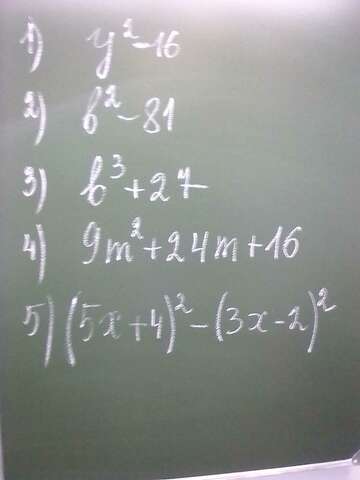 1) y²-16
2) b²-81
3) b³+27
4) 9m²+24m+16
5) (5x+4)²-(3x-2)²